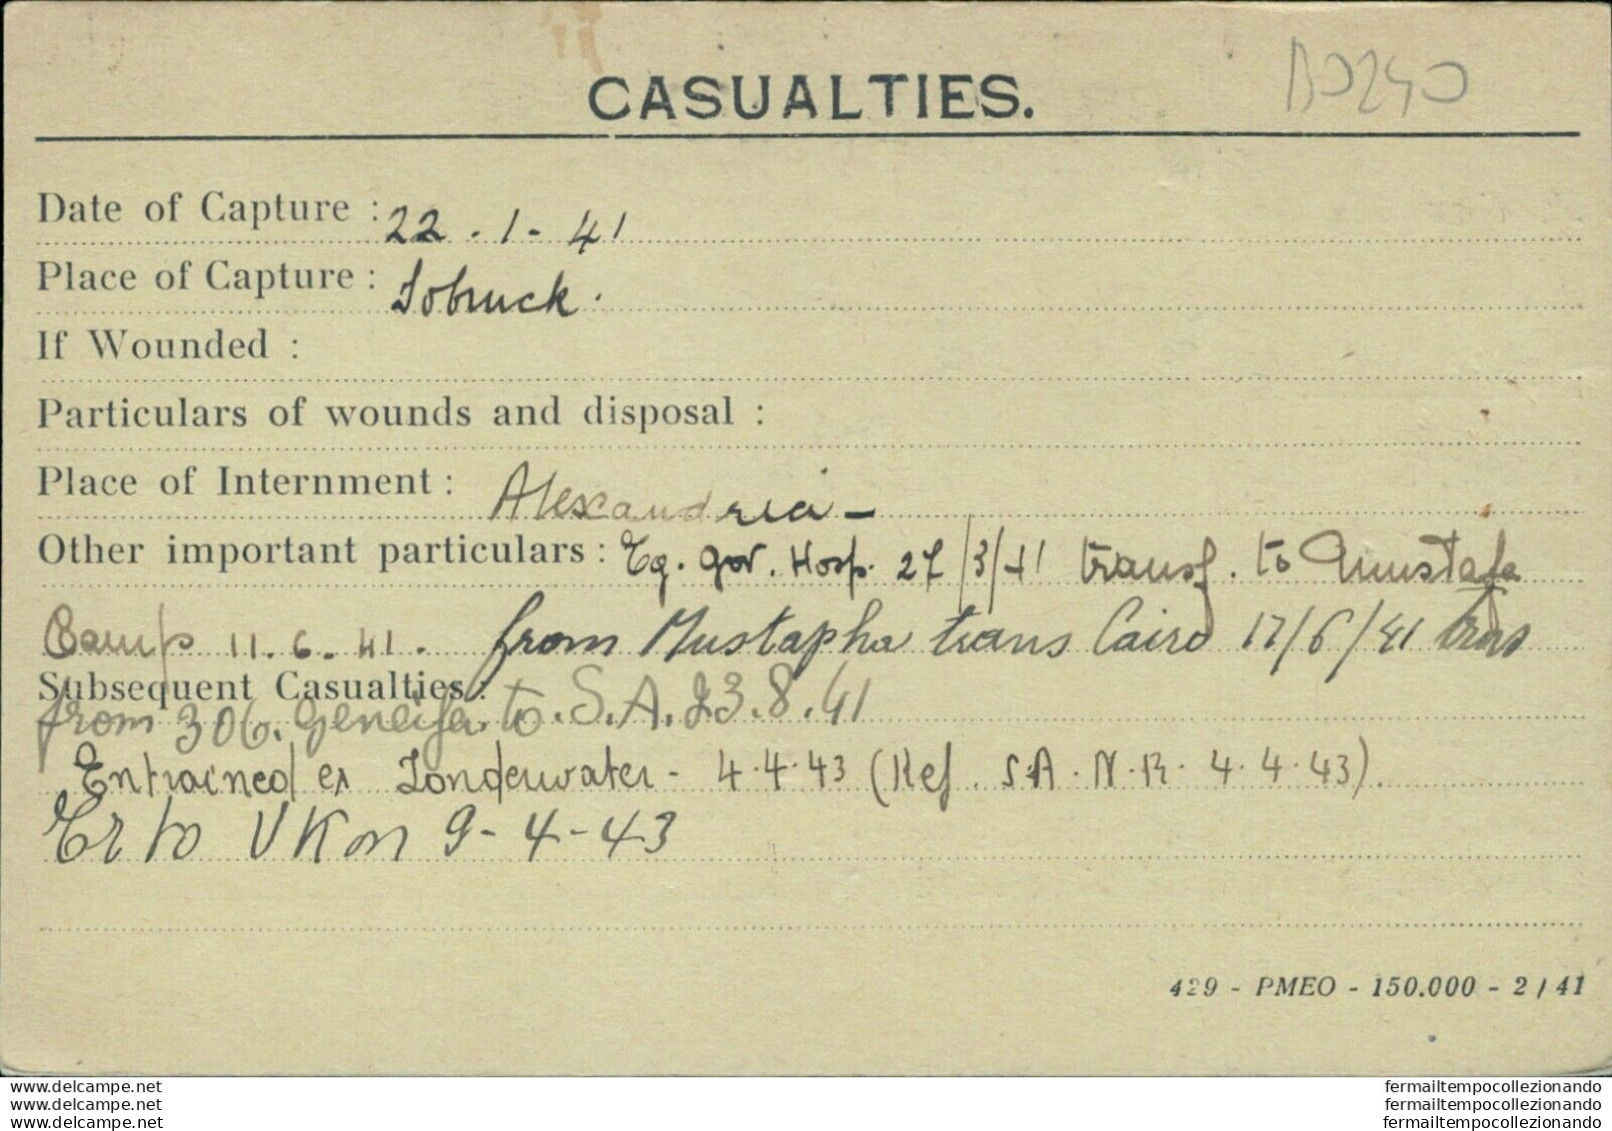 CASUALTIES.
Date of Capture : 22 - 1 - 41
Place of Capture : Tobruck.
If Wounded :
Particulars of wounds and disposal :
Place of Internment : Alexandria -
Other important particulars : Eg. Gov. Hosp. 27/3/41 transf. to Mustafa
Camp 11.6.41. from Mustapha trans Cairo 17/6/41 trans
Subsequent Casualties :
from 306. Geneifa. to. S.A. 23.8.41
Entrained ex Zonderwater - 4.4.43 (Ref. S.A.N.R. 4.4.43).
to UK on 9-4-43
429 - PMEO - 150.000 - 2 / 41
www.delcampe.net
www.delcampe.net
www.delcampe.net
fermailtempocollezionando
fermailtempocollezionando
fermailtempocollezionando